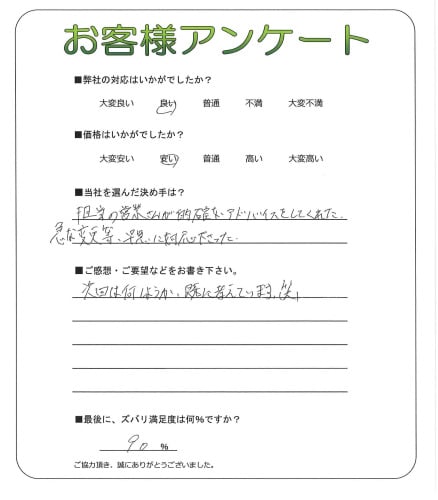 お客様アンケート
■弊社の対応はいかがでしたか?
大変良い 良い 普通 不満 大変不満
■価格はいかがでしたか?
大変安い 安い 普通 高い 大変高い
■当社を選んだ決め手は?
担当の営業さんが的確なアドバイスをしてくれた。
急な変更等、早急に対応下さった。
■ご感想・ご要望などをお書き下さい。
次回は何しようか、既に考えています。(笑)
■最後に、ズバリ満足度は何%ですか?
90 %
ご協力頂き、誠にありがとうございました。